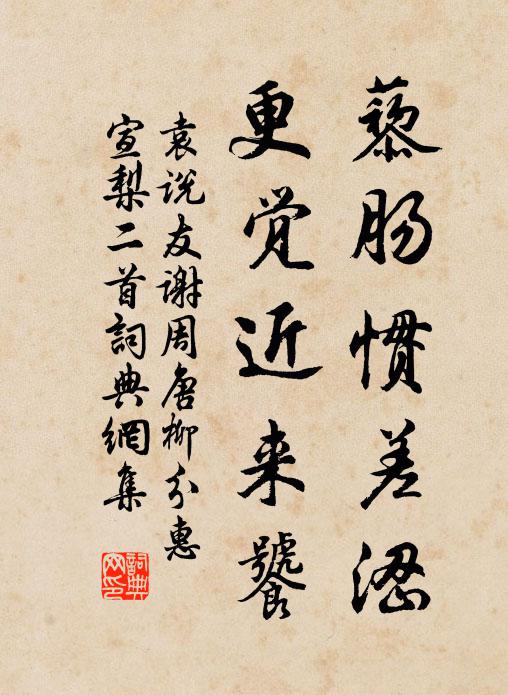 藜肠惯羞涩
更觉近来饕
袁说友谢周唐卿分惠
宣梨二首詞典網集
詞典網印